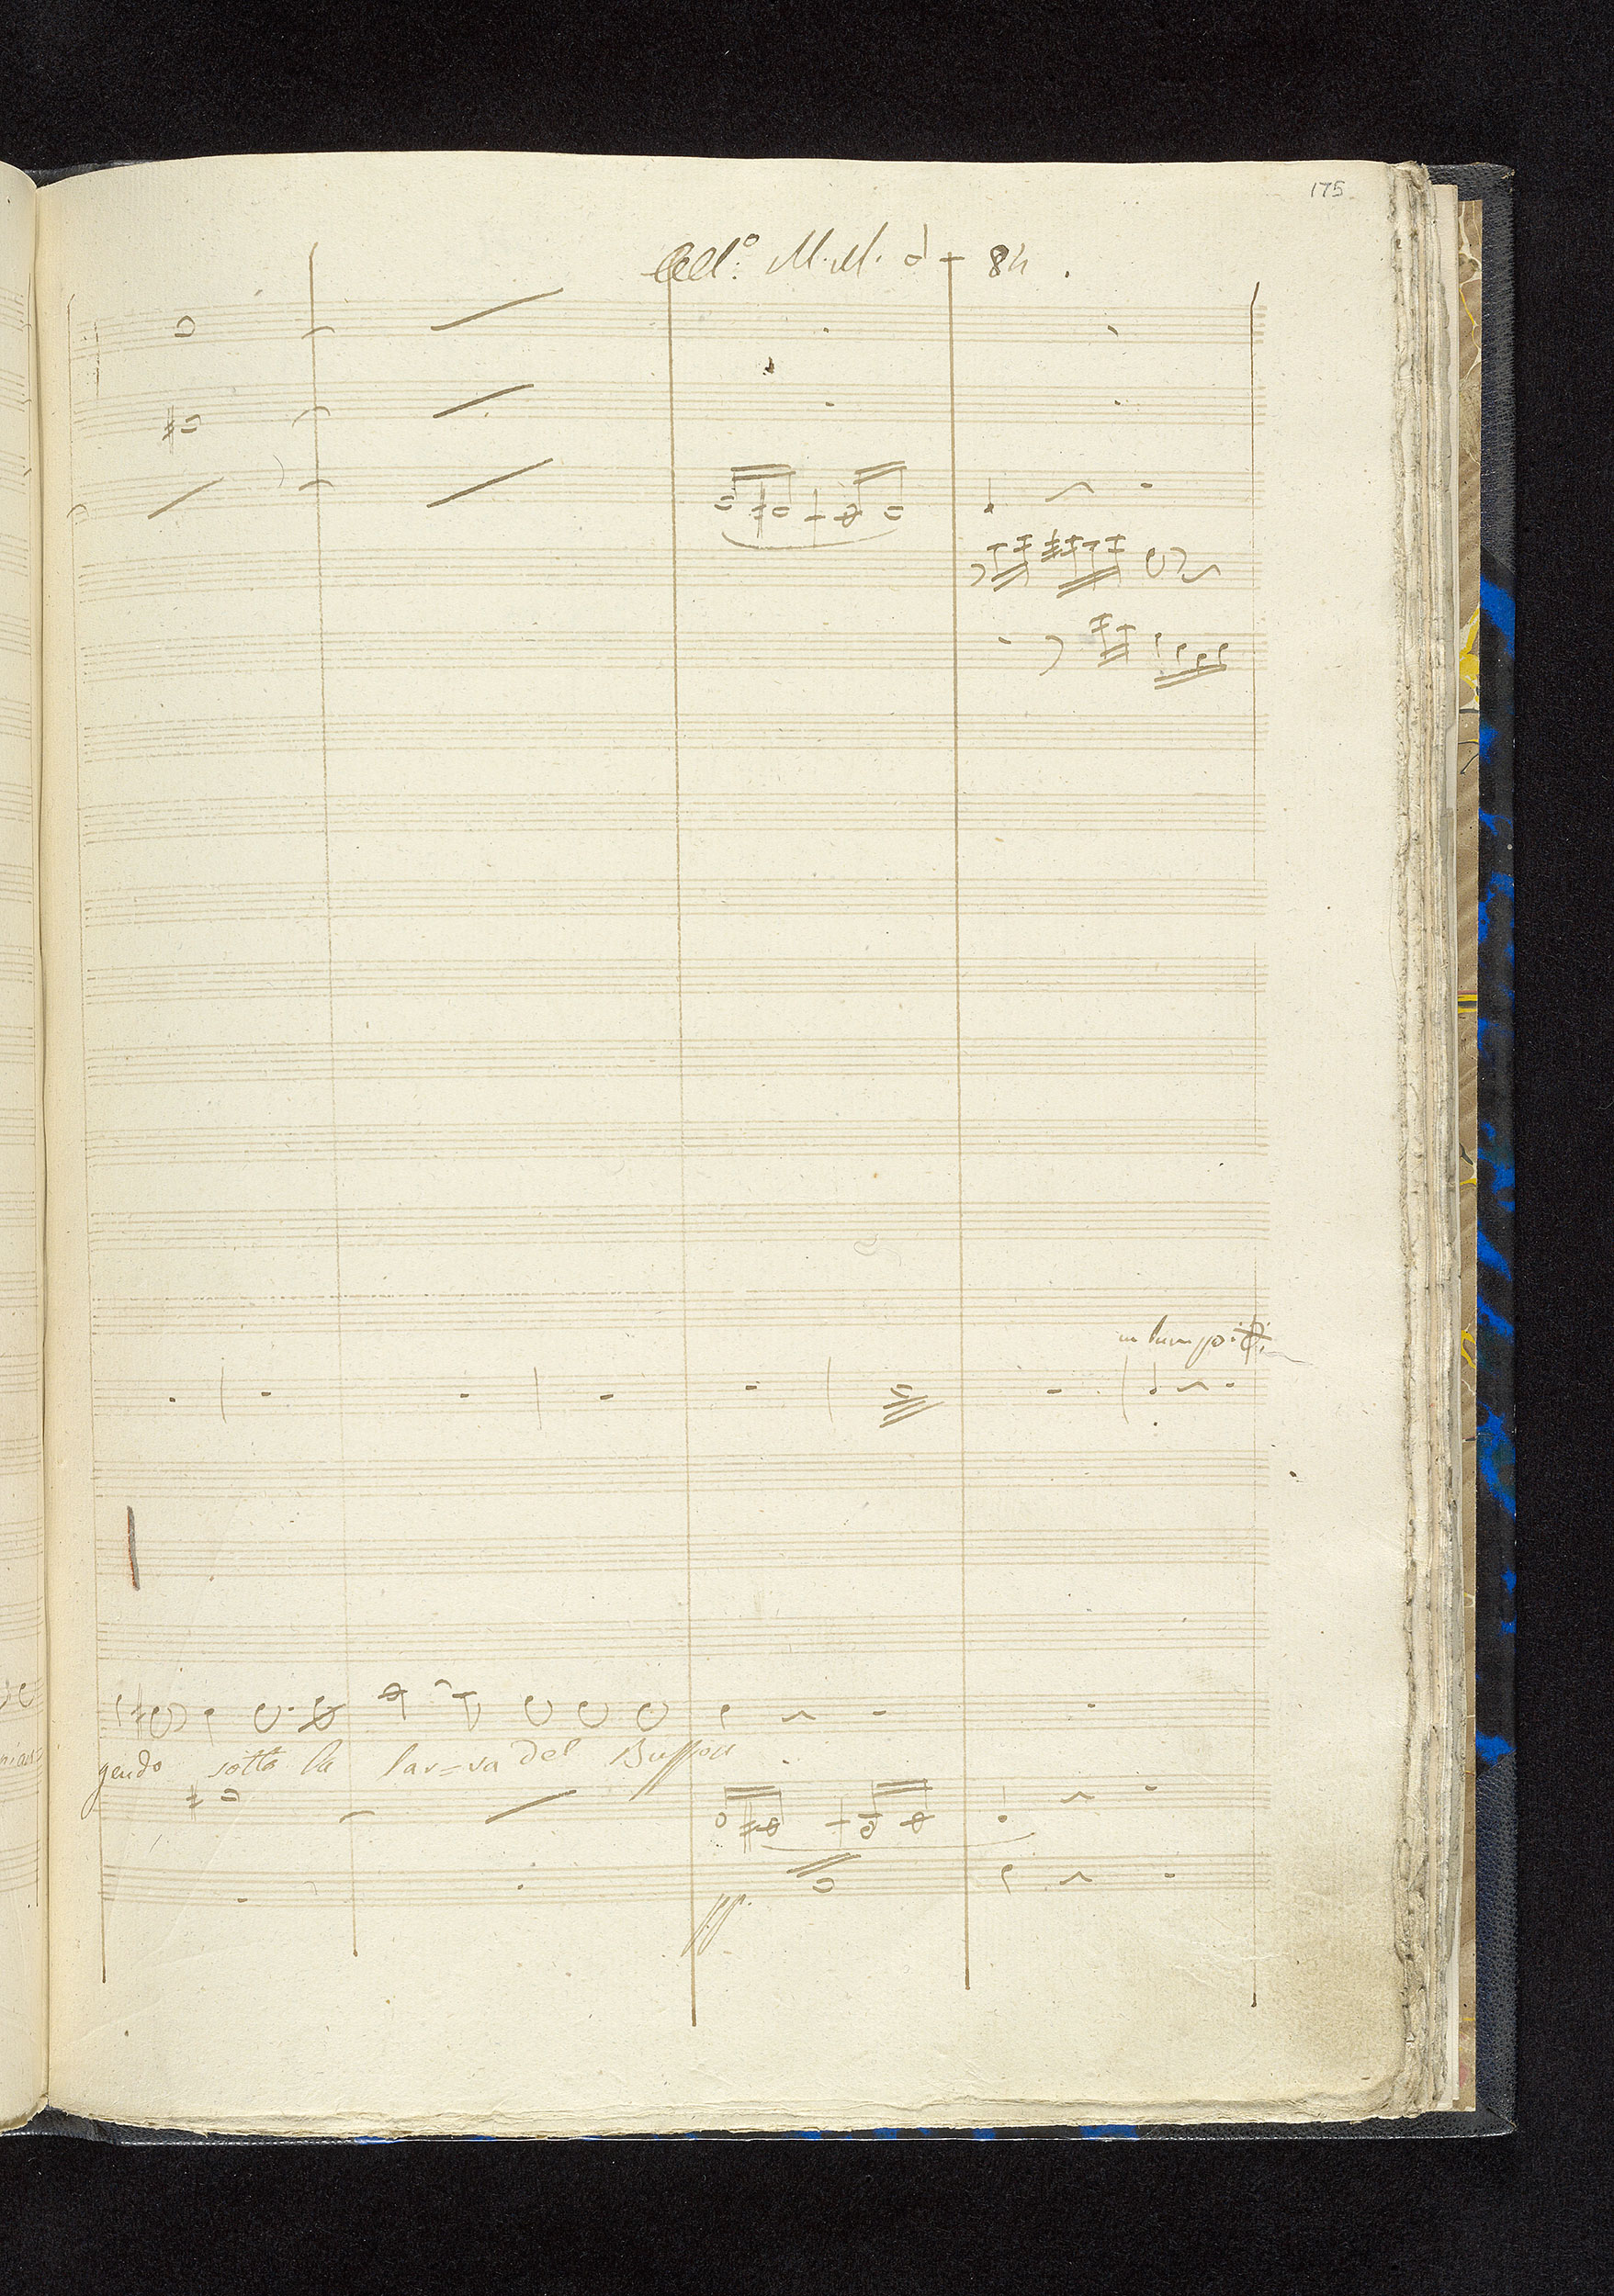 175
All.º M.M. 𝅗𝅥 = 84.
in tempo:
gendo sotto la lar=va del Buffon
pp.